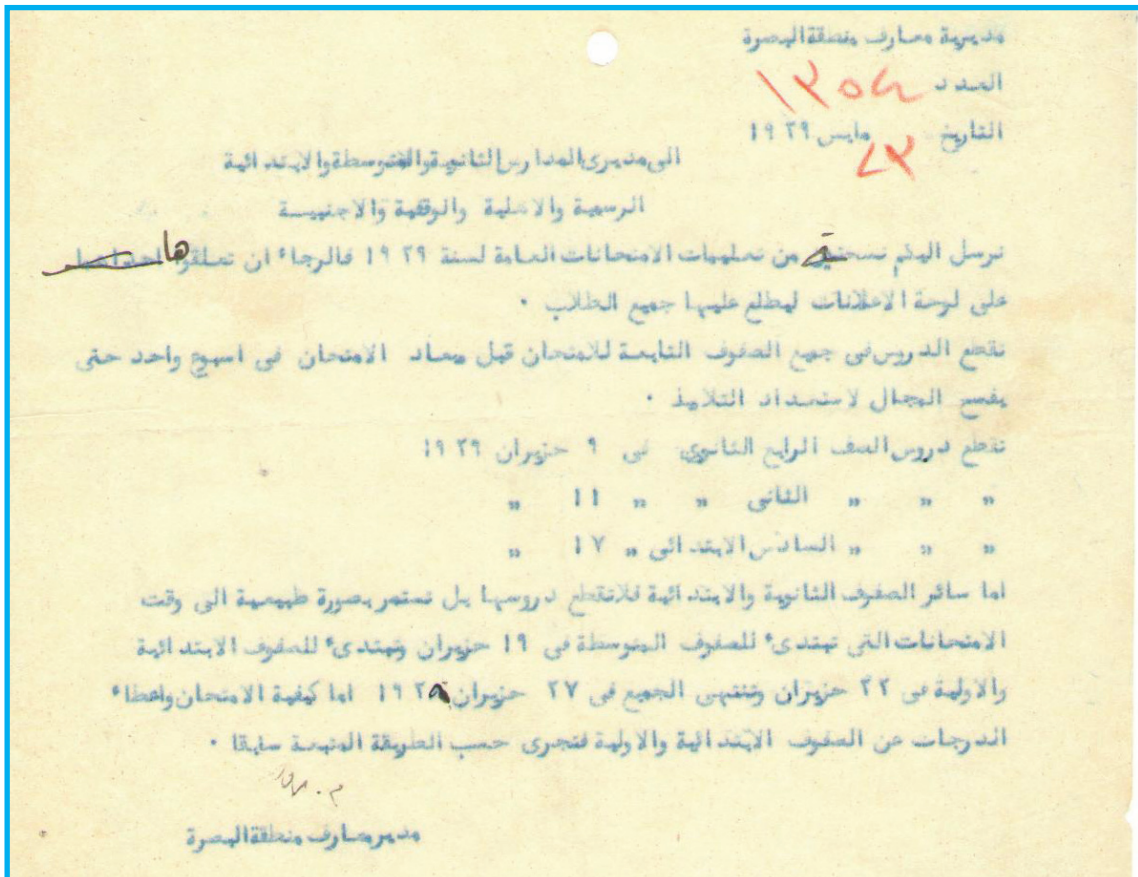 مديرية معارف منطقة البصرة
العدد ١٣٥٤
التاريخ ٢٣ مايس ١٩٢٩
الى مديرى المدارس الثانوية والمتوسطة والابتدائية
الرسمية والاهلية والوقفية والاجنبيسة
نرسل اليكم نسخة من تعليمات الامتحانات العامة لسنة ١٩٢٩ فالرجاء ان تعلقوها
على لوحة الاعلانات ليطلع عليها جميع الطلاب ٠
تقطع الدروس فى جميع الصفوف التابعة للامتحان قبل ميعاد الامتحان فى اسبوع واحد حتى
يفسح المجال لاستعداد التلاميذ ٠
تقطع دروس الصف الرابع الثانوى فى ٩ حزيران ١٩٢٩
„ „ „ الثانى „ „ ١١ „
„ „ „ السادس الابتدائى „ ١٧ „
اما سائر الصفوف الثانوية والابتدائية فلاتقطع دروسها بل تستمر بصورة طبيعية الى وقت
الامتحانات التى تبتدىء للصفوف المتوسطة فى ١٩ حزيران وتبتدىء للصفوف الابتدائية
والاولية فى ٢٢ حزيران وتنتهى الجميع فى ٢٧ حزيران ١٩٢٩ اما كيفية الامتحان واعطاء
الدرجات عن الصفوف الابتدائية والاولية فتجرى حسب الطريقة المتبعة سابقا ٠
مدير معارف منطقة البصرة